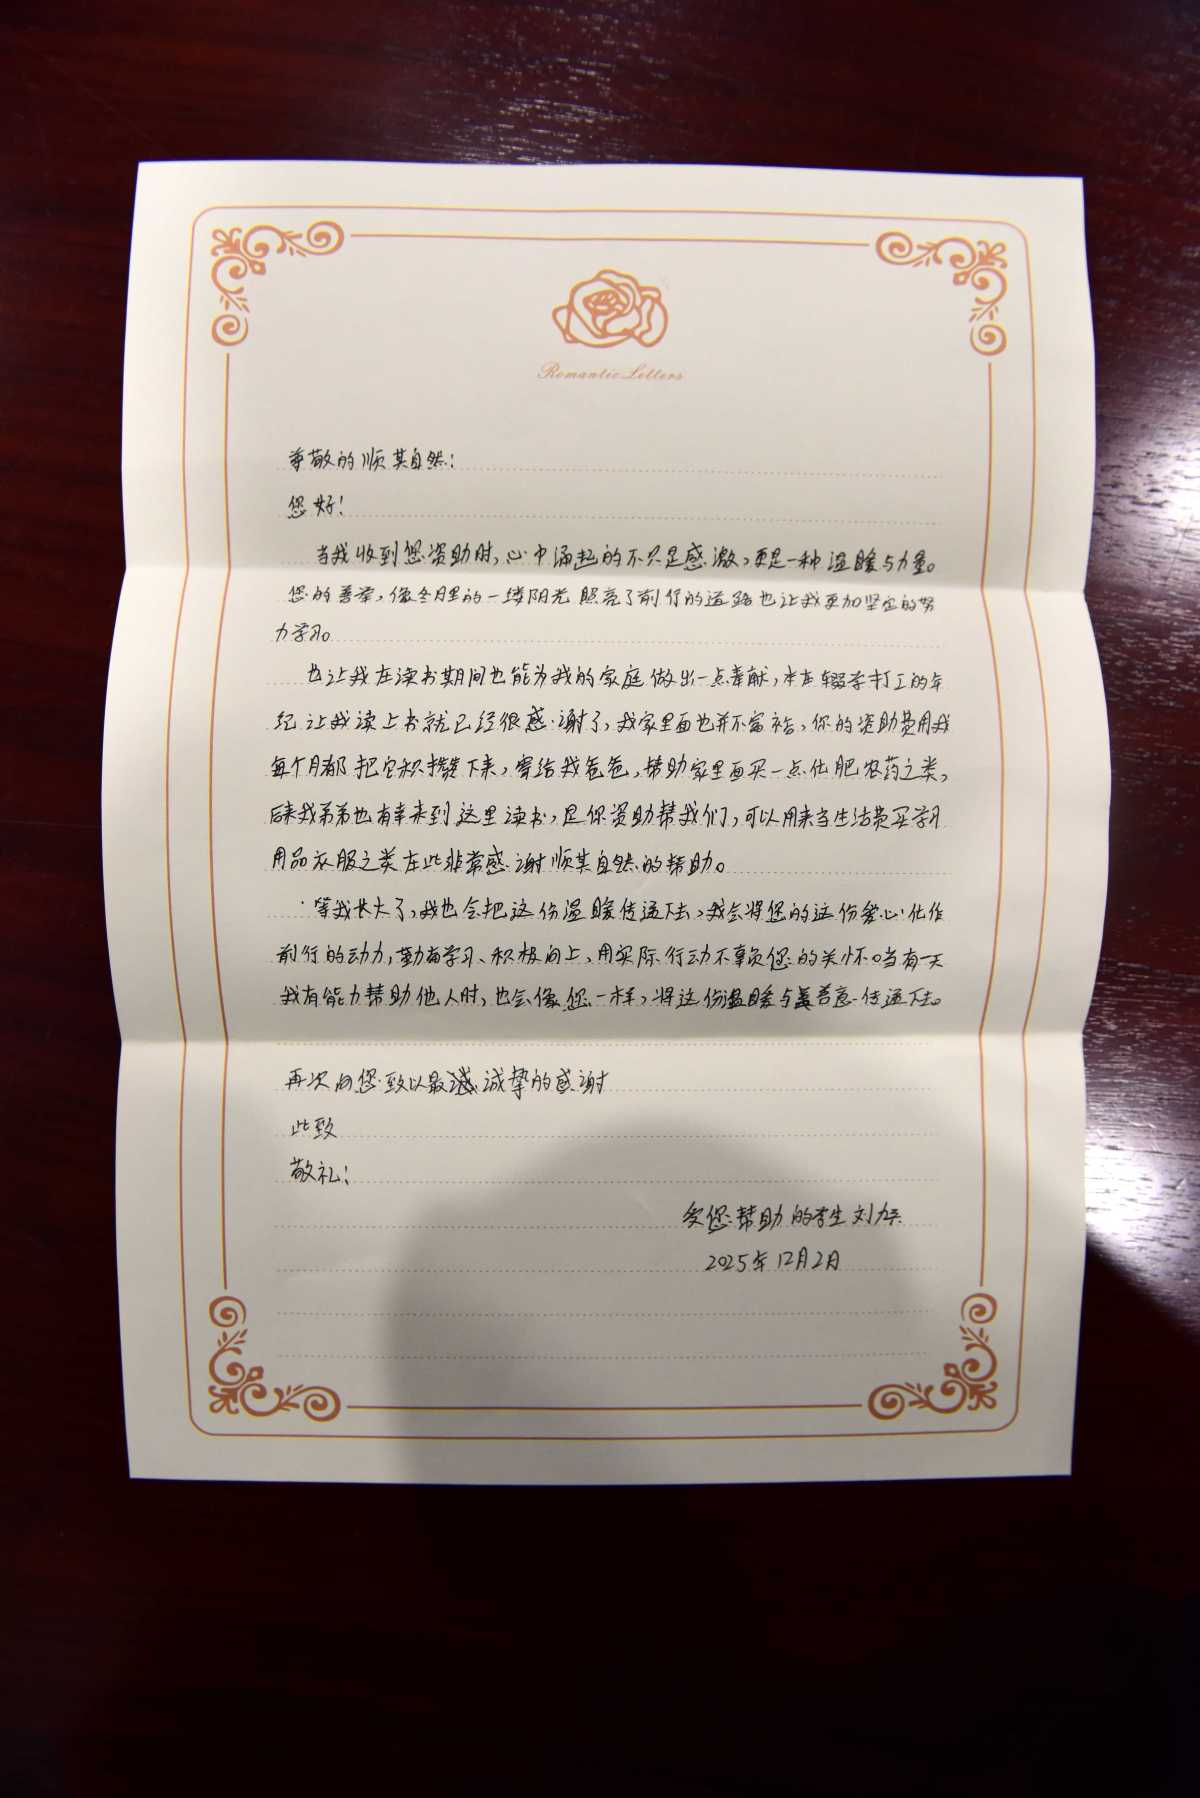 Romantic Letters
尊敬的顺其自然:
您好!
当我收到您资助时,心中涌起的不只是感激,更是一种温暖与力量。
您的善举,像冬月里的一缕阳光照亮了前行的道路也让我更加坚定的努
力学习。
也让我在读书期间也能为我的家庭做出一点奉献,本在辍学打工的年
纪让我读上书就已经很感谢了,我家里面也并不富裕,你的资助费用我
每个月都把它积攒下来,寄给我爸爸,帮助家里面买一点化肥农药之类,
后来我弟弟也有幸来到这里读书,是你资助帮我们,可以用来当生活费买学习
用品衣服之类在此非常感谢顺其自然的帮助。
等我长大了,我也会把这份温暖传递下去,我会将您的这份爱心化作
前行的动力,勤奋学习、积极向上,用实际行动不辜负您的关怀。当有一天
我有能力帮助他人时,也会像您一样,将这份温暖与善意传递下去。
再次向您致以最诚挚的感谢
此致
敬礼!
受您帮助的学生刘
2025年12月2日